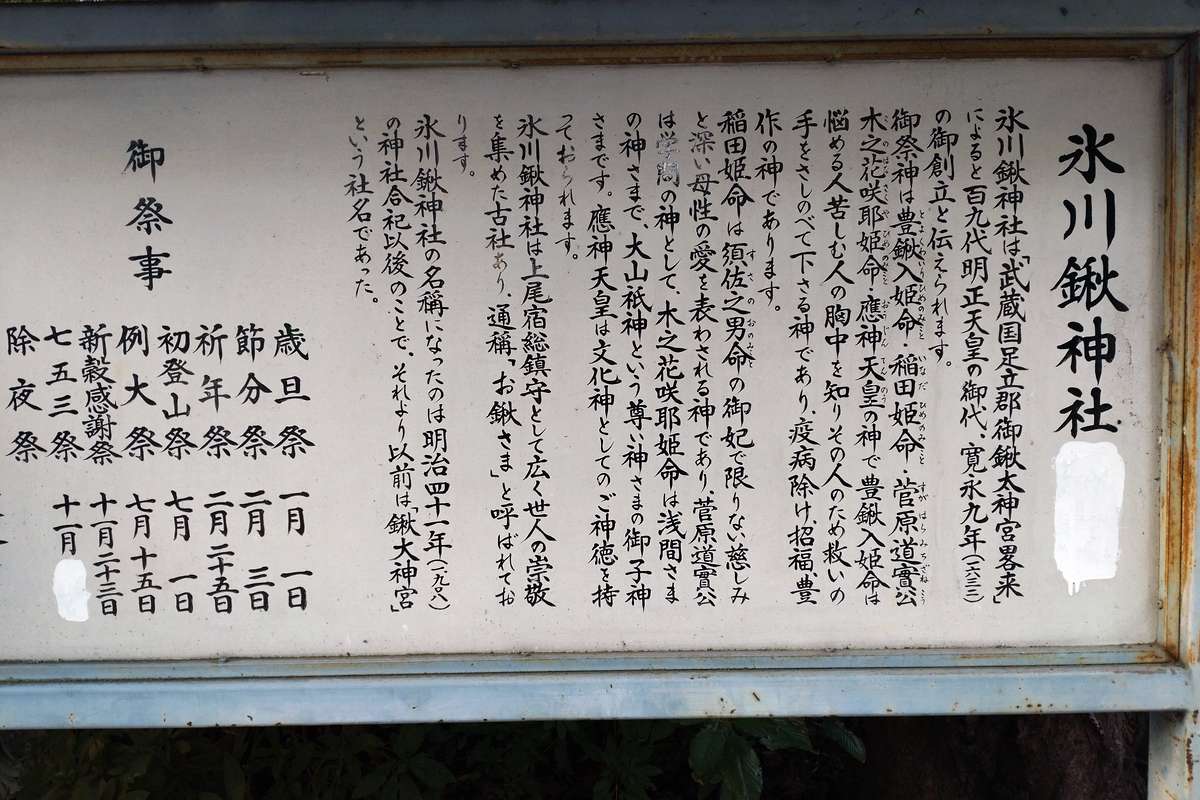 氷川鍬神社
氷川鍬神社は「武蔵国足立郡御鍬太神宮畧来」
によると百九代明正天皇の御代、寛永九年(一六三二)
の御創立と伝えられます。
御祭神は豊鍬入姫命・稲田姫命・菅原道實公
木之花咲耶姫命・應神天皇の神で豊鍬入姫命は
悩める人苦しむ人の胸中を知りその人のため救いの
手をさしのべて下さる神であり、疫病除け、招福、豊
作の神であります。
稲田姫命は須佐之男命の御妃で限りない慈しみ
と深い母性の愛を表わされる神であり、菅原道實公
は学問の神として、木之花咲耶姫命は浅間さま
の神さまで、大山祇神という尊い神さまの御子神
さまです。應神天皇は文化神としてのご神徳を持
っておられます。
氷川鍬神社は上尾宿総鎮守として広く世人の崇敬
を集めた古社あり、通稱「お鍬さま」と呼ばれてお
ります。
氷川鍬神社の名稱になったのは明治四十一年(一九〇八)
の神社合祀以後のことで、それより以前は「鍬大神宮」
という社名であった。
御祭事
歳旦祭 一月 一日
節分祭 二月 三日
祈年祭 二月二十五日
初登山祭 七月 一日
例大祭 七月十五日
新穀感謝祭 十一月二十三日
七五三祭 十一月
除夜祭